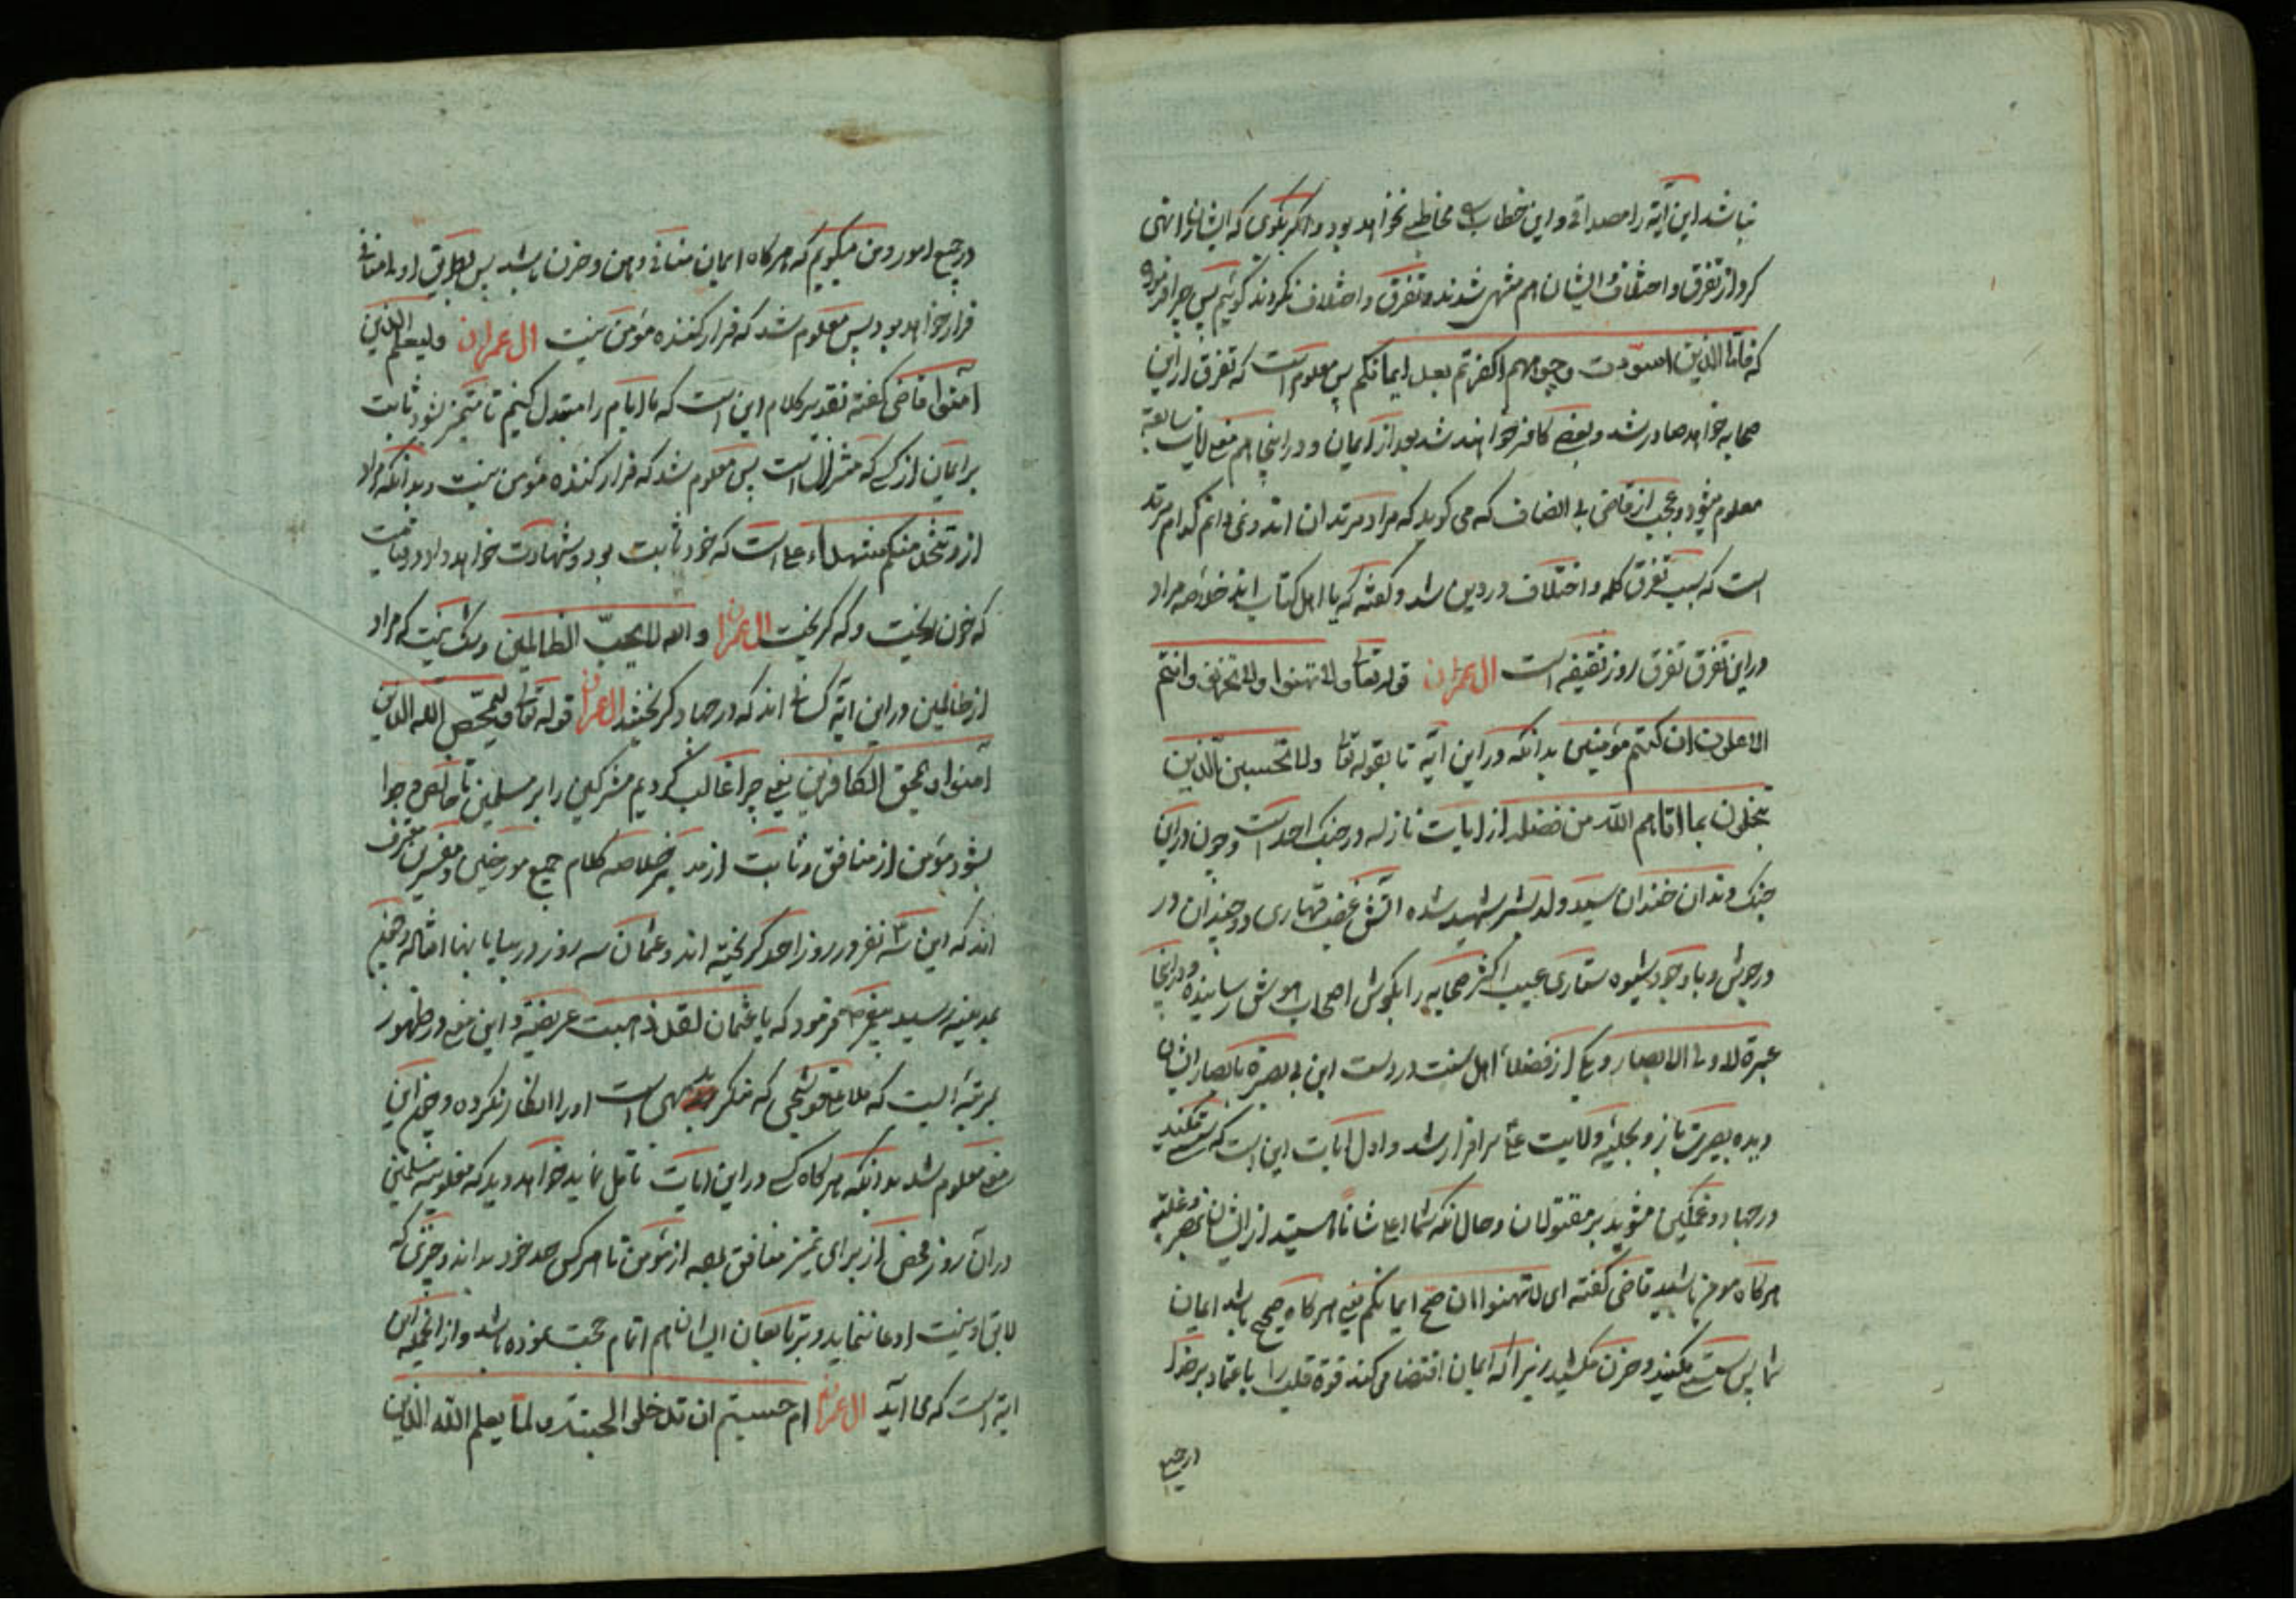 نباشد این آیة را مصداقی و این خطاب را مخاطبی نخواهد بود و اگر بگوی که ایشانرا نهی
کرد از تفرق و اختلاف و ایشان هم منتهی شدند و تفرق و اختلاف نکردند گوئیم پس چرا فرموده
که فاما الذین اسودت وجوههم اکفرتم بعد ایمانکم پس معلوم است که تفرق از این
صحابه خواهد صادر شد و بعضی کافر خواهند شد بعد از ایمان و در اینجا هم معنی آیات سابقه
معلوم میشود و عجب از قاضی بی انصاف که می کوید که مراد مرتدان اند و نمی دانم کدام مرتد
است که سبب تفرق کلمه و اختلاف در دین شد و کفته که یا اهل کتاب اند خلاصه مراد
در این تفرق تفرق روز سقیفه است ال عمران قوله تعا ولا تهنوا ولا تحزنوا وانتم
الاعلون ان کنتم مؤمنین بدانکه در این آیة تا بقوله تعا ولا تحسبن الذین
یبخلون بما اتاهم الله من فضله از ایات نازله در جنک احد است و چون در این
جنک دندان خندان سید ولد بشر شهید شده اتش غضب قهاری دو چندان در
در جوش و با وجود شیوه ستاری عیب اکثر صحابه را بکوش اصحاب هوش رسانیده و در اینجا
عبرة لاولی الابصار و یکی از فضلاء اهل سنت در دست این بی بصیرة با بصار ایشان
دیده بصیرت باز و بحلیه ولایت علی سر افراز شد و اول ایات این است که سستی مکنید
در جهاد و غمکین مشوید بر مقتولان و حال انکه شما اعلی شانا هستید از ایشان بنصر و غلبه
هرکاه مومن باشید قاضی کفته ای لا تهنوا ان صح ایمانکم یعنی هرکاه صحیح باشد ایمان
شما پس سستی مکنید و حزن مکشید زیرا که ایمان اقتضا می کند قوة قلب را باعتماد بر خدا
در جمیع
در جمیع امور و من میکویم که هرکاه ایمان منافی وهن و حزن باشد پس بطریق اولی منافی
فرار خواهد بود پس معلوم شد که فرار کننده مؤمن نیست ال عمران ولیعلم الذین
آمنوا قاضی کفته تقدیر کلام این است که ما ایام را متبدل کنیم تا متمیز شود ثابت
بر ایمان از کسی که متزلزل است پس معلوم شد که فرار کننده مؤمن نیست و بدانکه مراد
از ویتخذ منکم شهداء علی است که خود ثابت بود و شهادت خواهد داد در قیامت
که خون ریخت و که کریخت ال عمران والله لا یحب الظالمین و شک نیست که مراد
از ظالمین در این ایة کسانی اند که در جهاد کریختند ال عمران قوله تعا ولیمحص الله الذین
آمنوا ویمحق الکافرین یعنی چرا غالب کردیم مشرکین را بر مسلمین تا خالص و جدا
بشود مؤمن از منافق و ثابت از مدبر خلاصه کلام جمیع مورخین و مفسرین معترف
اند که این سه نفر در روز احد کریخته اند و عثمان سه روز در بیابانها افتاده و همین
بمدینه رسید پیغمبر ص فرمود که یا عثمان لقد ذهبت عریضة و این معنی در ظهور
بمرتبه ایست که ملا علی قوشجی که منکر بدیهی است او را انکار نکرده و چون این
معنی معلوم شد بدانکه هرکاه کسی در این ایات تامل نماید خواهد دید که مغلوبیة مسلمین
در آن روز محض از برای تمیز منافق بوده از مؤمن تا هر کس حد خود بداند و چیزی که
لایق او نیست ادعا ننماید و بر تابعان ایشان هم اتمام حجت نموده باشد و از انجمله این
ایة است که می آید ال عمران ام حسبتم ان تدخلوا الجنة ولما یعلم الله الذین